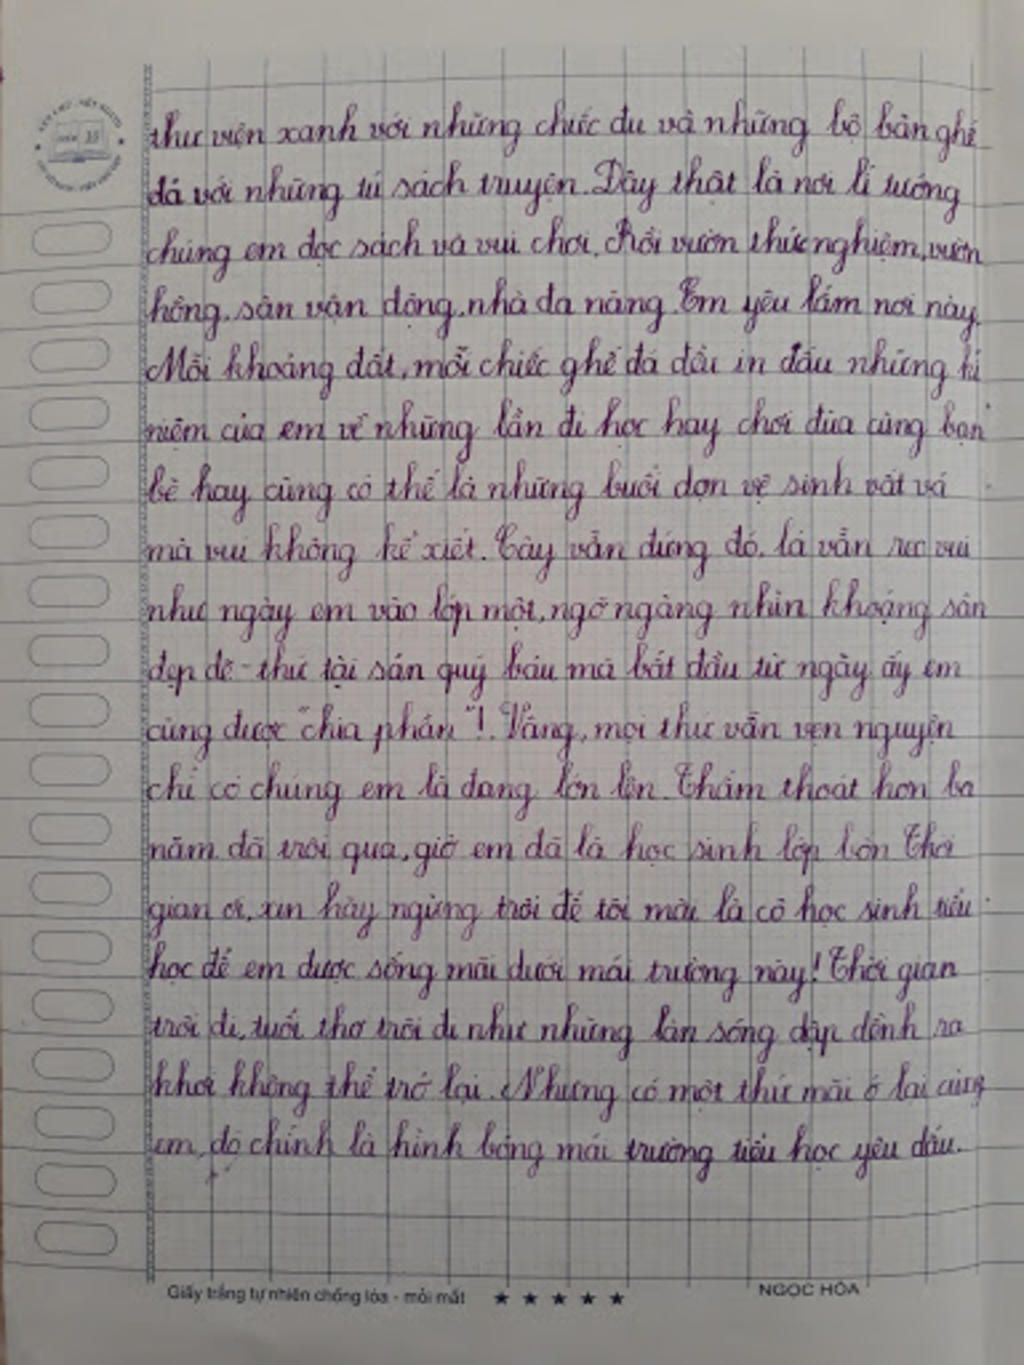 thư viện xanh với những chiếc dù và những bộ bàn ghế
đá với những tủ sách truyện. Đây thật là nơi lí tưởng
chúng em đọc sách và vui chơi. Rồi vườn thức nghiệm, vườn
hồng, sân vận động, nhà đa năng. Em yêu lắm nơi này.
Mỗi khoảng đất, mỗi chiếc ghế đá đều in dấu những kỉ
niệm của em về những lần đi học hay chơi đùa cùng bạn
bè hay cũng có thể là những buổi dọn vệ sinh vất vả
mà vui không kể xiết. Cây vẫn đứng đó, lá vẫn reo vui
như ngày em vào lớp một, ngỡ ngàng nhìn khoảng sân
đẹp đẽ - thứ tài sản quý báu mà bắt đầu từ ngày ấy em
cũng được "chia phần"!. Vâng, mọi thứ vẫn vẹn nguyên
chỉ có chúng em là đang lớn lên. Thấm thoát hơn ba
năm đã trôi qua, giờ em đã là học sinh lớp bốn Thời
gian ơi, xin hãy ngừng trôi để tôi mãi là cô học sinh tiểu
học để em được sống mãi dưới mái trường này! Thời gian
trôi đi, tuổi thơ trôi đi như những làn sóng dập dềnh ra
khơi không thể trở lại. Nhưng có một thứ mãi ở lại cùng
em, đó chính là hình bóng mái trường tiểu học yêu dấu.
Giấy trắng tự nhiên chống lóa - mỏi mắt ★ ★ ★ ★ ★ NGỌC HÒA